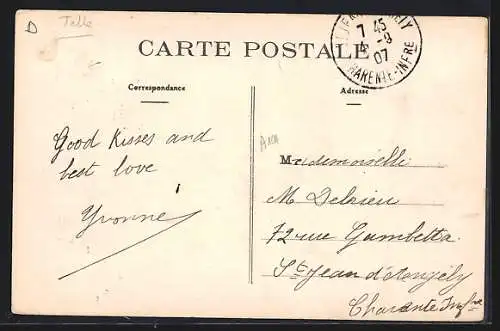 D
Talle
CARTE POSTALE
ST JEAN D'ANGELY
7 45
4 -9
07
CHARENTE-INFRE
Correspondance
Adresse
Good Kisses and
best love
Yvonne
Mademoiselle
M Delrieu
72 rue Gambetta
St Jean d'Angély
Charente Infre